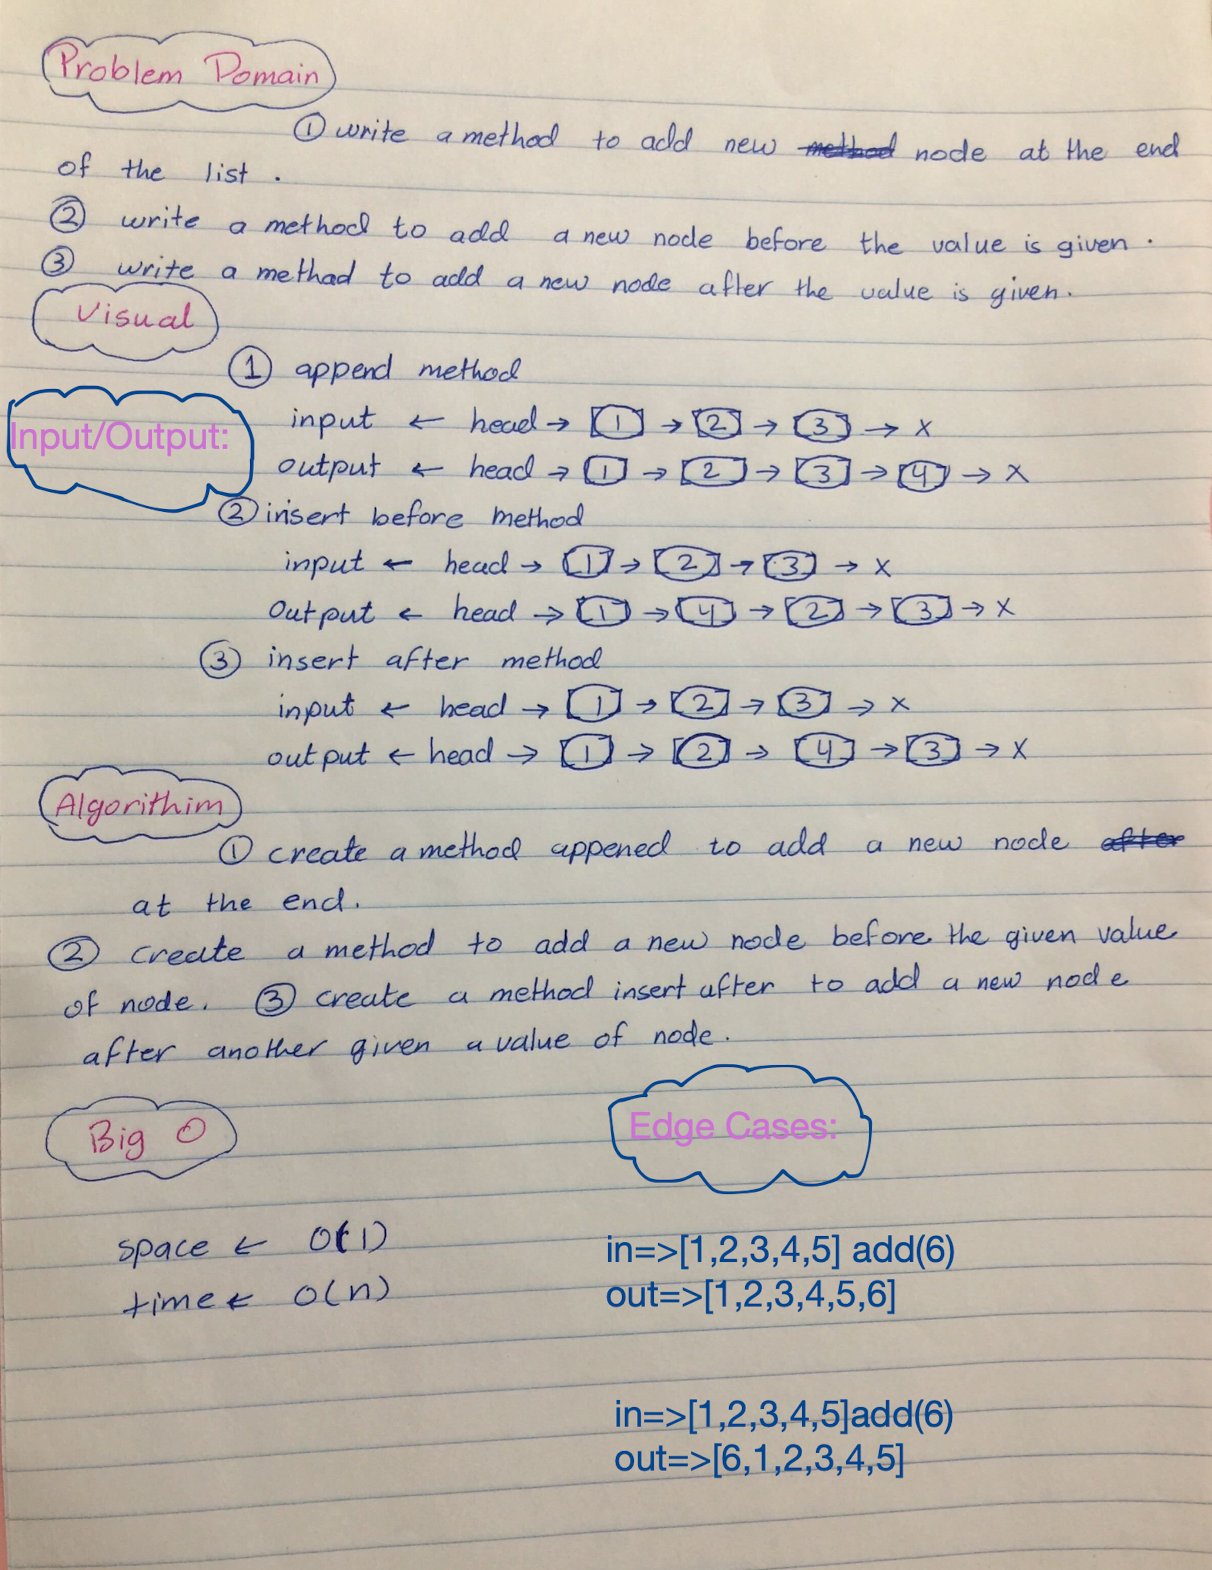 Problem Domain
① write a method to add new method node at the end
of the list .
② write a method to add a new node before the value is given .
③ write a methad to add a new node after the value is given.
Visual
① append method
Input/Output:
input ← head → 1 → 2 → 3 → x
output ← head → 1 → 2 → 3 → 4 → x
② insert before method
input ← head → 1 → 2 → 3 → x
output ← head → 1 → 4 → 2 → 3 → x
③ insert after method
input ← head → 1 → 2 → 3 → x
output ← head → 1 → 2 → 4 → 3 → x
Algorithim
① create a method appened to add a new node after
at the end.
② create a method to add a new node before the given value
of node. ③ create a method insert after to add a new node
after another given a value of node.
Big O
space ← O(1)
time ← O(n)
Edge Cases:
in=>[1,2,3,4,5] add(6)
out=>[1,2,3,4,5,6]
in=>[1,2,3,4,5]add(6)
out=>[6,1,2,3,4,5]